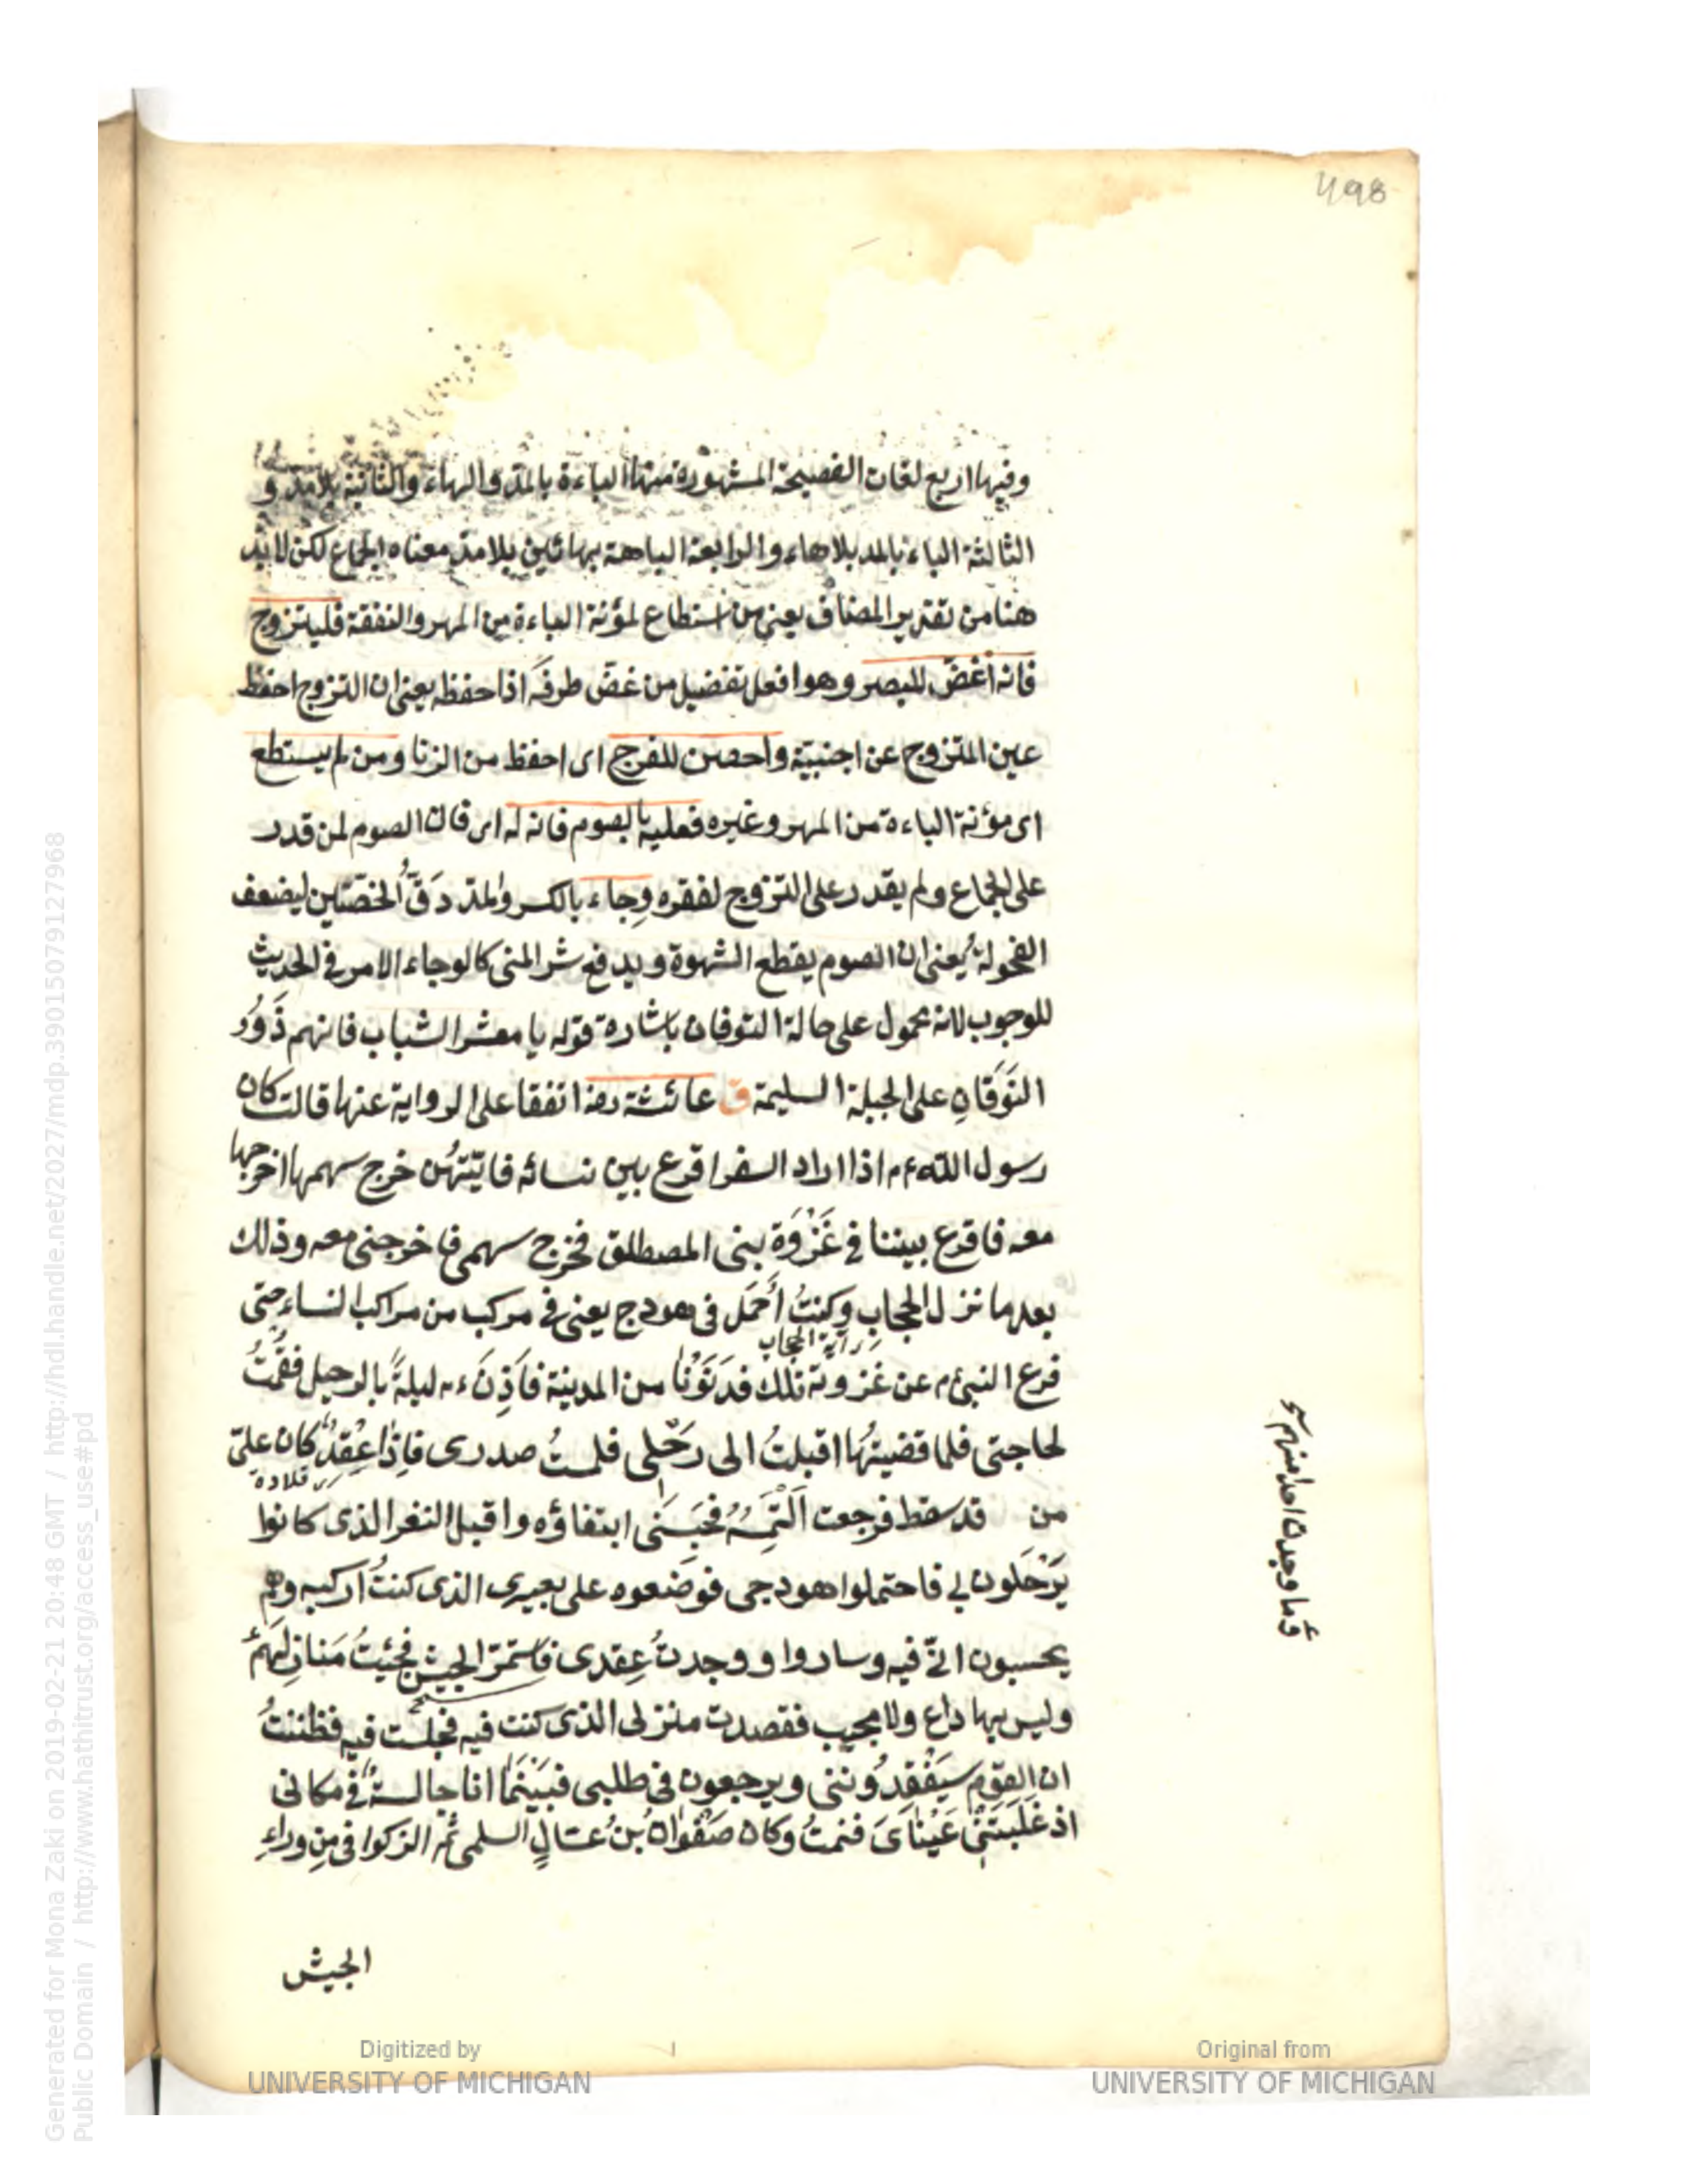 498
وفيها اربع لغات الفصيحة المشهورة منها الباءة بالمد والهاء والثانية بلا مد و
الثالثة الباء بالمد بلا هاء والرابعة الباهة بهائين بلا مد معناه الجماع لكن لا بد
هنا من تقدير المضاف يعنى من استطاع لمؤنة الباءة من المهر والنفقة فليتزوج
فانه أغضّ للبصر وهو افعل تفضيل من غضّ طرفَه اذا حفظه يعنى ان التزوج احفظ
عين المتزوج عن اجنبيّة واحصن للفرج اى احفظ من الزنا ومن لم يستطع
اى مؤنة الباءة من المهر وغيره فعليه بالصوم فانه له اى فان الصوم لمن قدر
على الجماع ولم يقدر على التزوج لفقره وِجاء بالكسر والمد دَقّ الخصّتين ليضعف
الفحولة يعنى ان الصوم يقطع الشهوة ويدفع شر المنى كالوجاء الامر فى الحديث
للوجوب لانه محمول على حالة التوقان باشارة قوله يا معشر الشباب فانهم ذَوُو
التَوَقَانِ على الجبلة السليمة ق عائشة رضہ اتفقا على الرواية عنها قالت كان
رسول الله عم اذا اراد السفر اقرع بين نسائه فايّتهُن خرج سهمها اخرجها
معه فاقرع بيننا فى غَزْوَة بنى المصطلق فخرج سهمى فاخرجنى معه وذلك
بعد ما نزل الحجاب وكنتُ أُحمَل فى هودج يعنى فى مركب من مراكب النساء حتى
اية الحجاب
فرغ النبى م عن غزوته تلك فدَنَوْنا من المدينة فآذنَ عم ليلةً بالرحيل فقُمتُ
لحاجتى فلما قضيتُها اقبلتُ الى رَحْلى فلمستُ صدرى فاِذا عِقدٌ كان علىّ
قلادة
من قد سقط فرجعت اَلْتَمِسُهُ فحَبَسَنى ابتغاؤه واقبل النفر الذى كانوا
يَرْحَلون لى فاحتملوا هودجى فوضعوه على بعيرى الذى كنتُ اركبه وهم
يحسبون انّى فيه وساروا ووجدتُ عِقدى فاستمرّ الجيش فجئتُ مَنازلهم
وليس بها داع ولا مجيب فقصدت منزلى الذى كنت فيه فجلست فيه فظننتُ
ان القوم سيَفْقِدُوننى ويرجعون فى طلبى فبَيْنَما انا جالسةٌ فى مكانى
اذ غَلَبَتْنى عَيْناىَ فنمتُ وكان صَفْوانُ بنُ عتالٍ السلمى ثم الزكوا فى مِن وراءِ
الجيش
وما وجدت احدا منهم